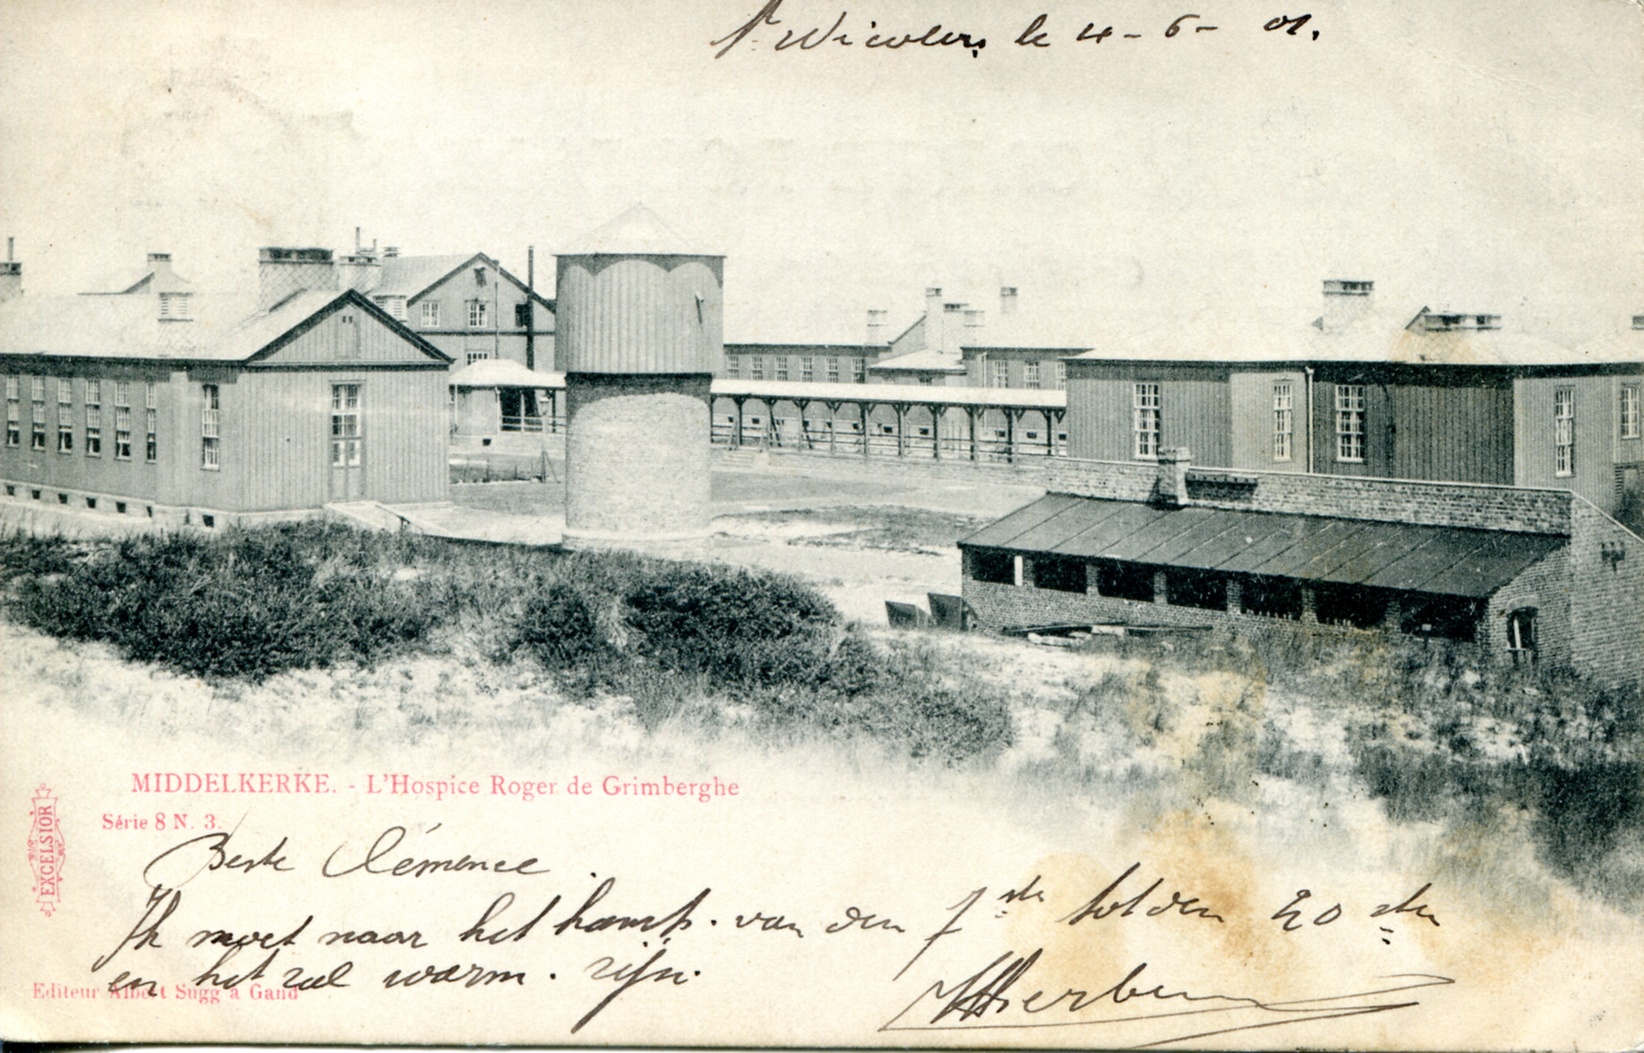 St Nicolas, le 4-6- 01.
MIDDELKERKE. - L'Hospice Roger de Grimberghe
Série 8 N. 3.
EXCELSIOR
Beste Clémence
Ik moet naar het kamp. van den 7 ste tot den 20 sten
en het zal warm. zijn.
Editeur Albert Sugg à Gand